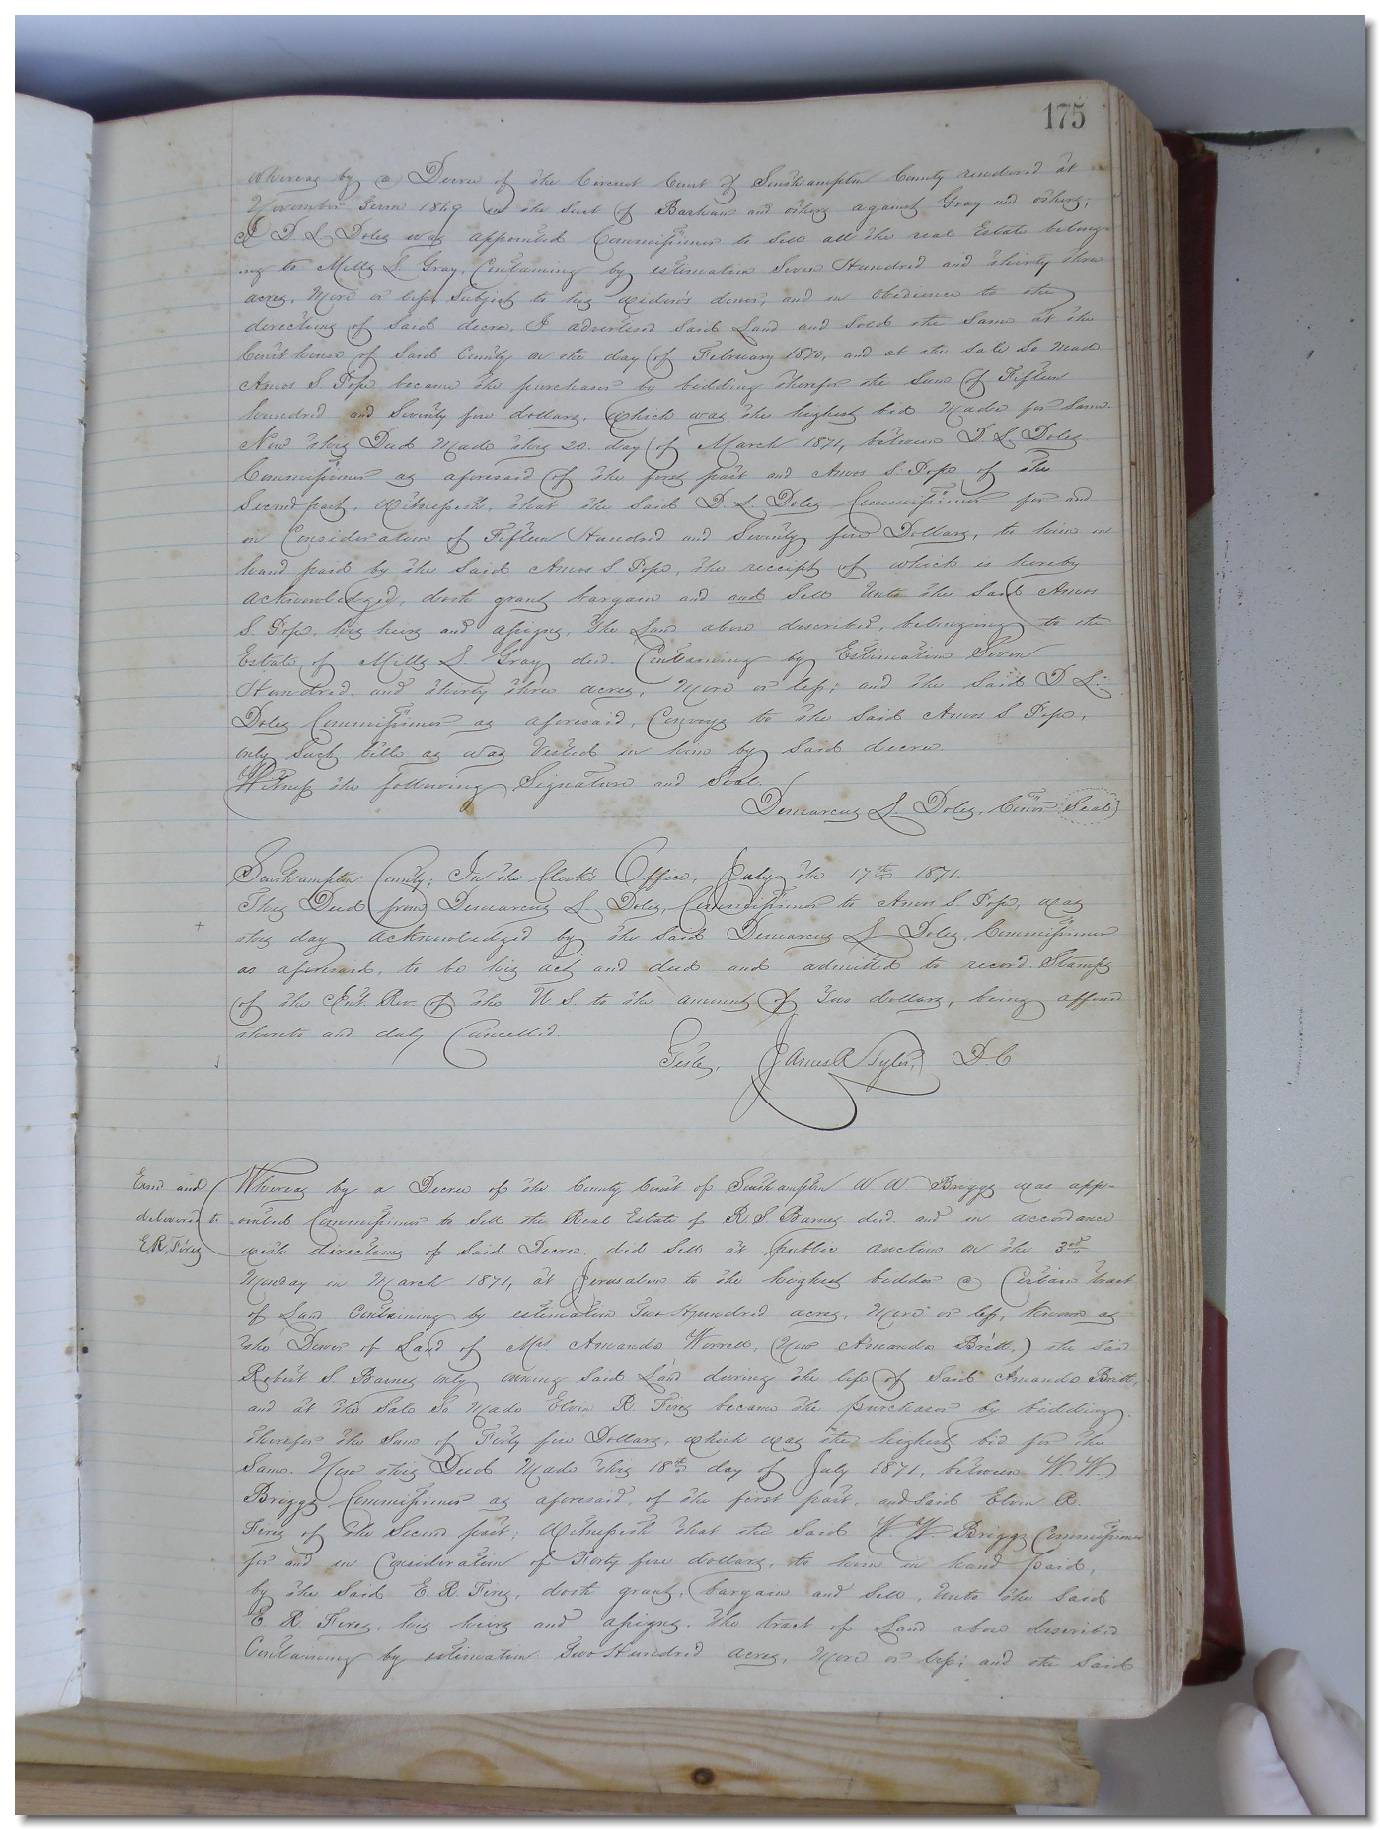 175
Whereas by a Decree of the Circuit Court of Southampton County rendered at
November Term 1869 in the Suit of Barham and others against Gray and others;
I D. L. Doles was appointed Commissioner to Sell all the real Estate belong-
ing to Mills L. Gray, Containing by estimation Seven Hundred and thirty three
acres, More or less Subject to his widow's dower, and in obedience to the
directions of Said decree, I advertised Said Land and Sold the Same at the
Court house of Said County on the day of February 1870, and at the Sale So Made
Amos S. Pope became the purchaser by bidding therefor the Sum of Fifteen
hundred and Seventy five dollars, which was the highest bid Made for Same.
Now this Deed Made this 20. day of March 1871, between D L Doles
Commissioner as aforesaid of the first part and Amos S. Pope of the
Second part, Witnesseth, that the Said D. L. Doles Commissioner for and
in Consideration of Fifteen Hundred and Seventy five Dollars, to him in
hand paid by the Said Amos S. Pope, the receipt of which is hereby
acknowledged, doth grant bargain and and Sell Unto the Said Amos
S. Pope, his heirs and assigns, The Land above described, belonging to the
Estate of Mills L. Gray decd. Containing by Estimation Seven
Hundred and thirty three acres, More or less; and the Said D L.
Doles Commissioner as aforesaid, Conveys to the Said Amos S. Pope,
only Such title as was Vested in him by Said decree.
Witness the following Signature and Seal.
Demarcus L. Doles, Comr Seal
Southampton County: In the Clerk's Office, July the 17th 1871.
This Deed from Demarcus L Doles, Commissioner to Amos S. Pope, was
this day acknowledged by the Said Demarcus L Doles, Commissioner
as aforesaid, to be his act and deed and admitted to record. Stamps
of the Int. Rev. of the U. S. to the amount of Two dollars, being affixed
thereto and duly Cancelled.
Teste, James R Tyler, D. C
Exd and
delivered to
E R. Fires
Whereas by a Decree of the County Court of Southampton W W Briggs was app-
ointed Commissioner to Sell the Real Estate of R. S. Barnes decd. and in accordance
with directions of Said Decree, did Sell at public auction on the 3rd
Monday in March 1871, at Jerusalem to the highest bidder a Certain tract
of Land Containing by estimation Two Hundred acres, More or less, Known as
the Dower of Land of Mrs Amanda Worrell, (Now Amanda Britt,) the Said
Robert S Barnes only owning Said Land during the life of Said Amanda Britt,
and at the Sale So Made Elvin R. Fires became the purchaser by bidding
therefor the Sum of Forty five Dollars, which was the highest bid for the
Same. Now this Deed Made this 18th day of July 1871, between W. W.
Briggs Commissioner as aforesaid, of the first part, and Said Elvin R.
Fires of the Second part; Witnesseth that the Said W W. Briggs Commissioner
for and in Consideration of Forty five dollars, to him in hand paid,
by the Said E. R. Fires, doth grant, bargain and Sell, Unto the Said
E. R. Fires, his heirs and assigns. The tract of Land above described
Containing by estimation Two Hundred acres, More or less; and the Said